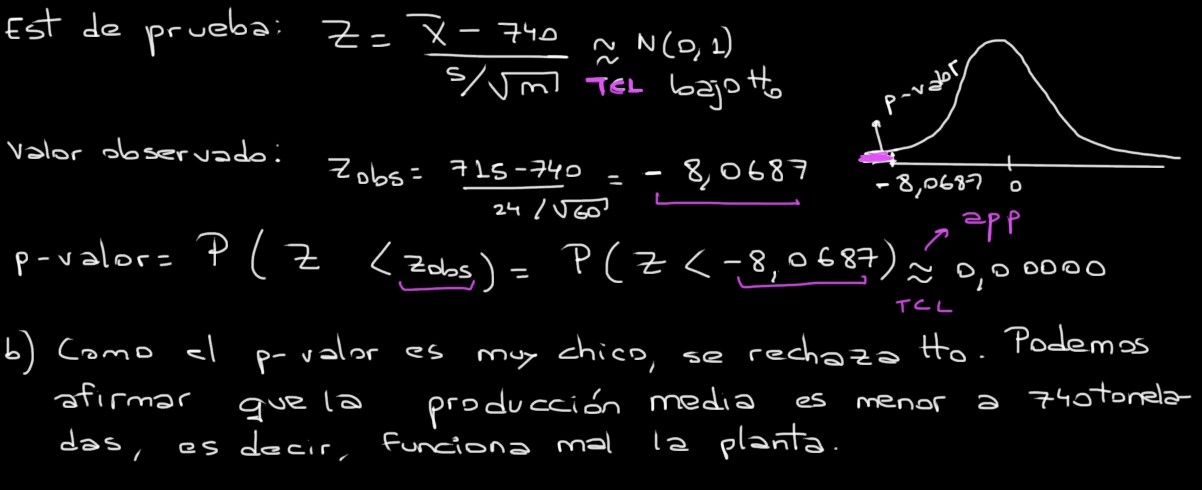 Est de prueba: Z = x̄ - 740 / s/√n ≈ N(0,1)
TCL bajo Ho
p-valor
Valor observado: Zobs = 715-740 / 24/√60 = - 8,0687
-8,0687 0
app
p-valor = P( Z < Zobs ) = P( Z < -8,0687) ≈ 0,00000
TCL
b) Como el p-valor es muy chico, se rechaza Ho. Podemos
afirmar que la producción media es menor a 740 tonela-
das, es decir, funciona mal la planta.